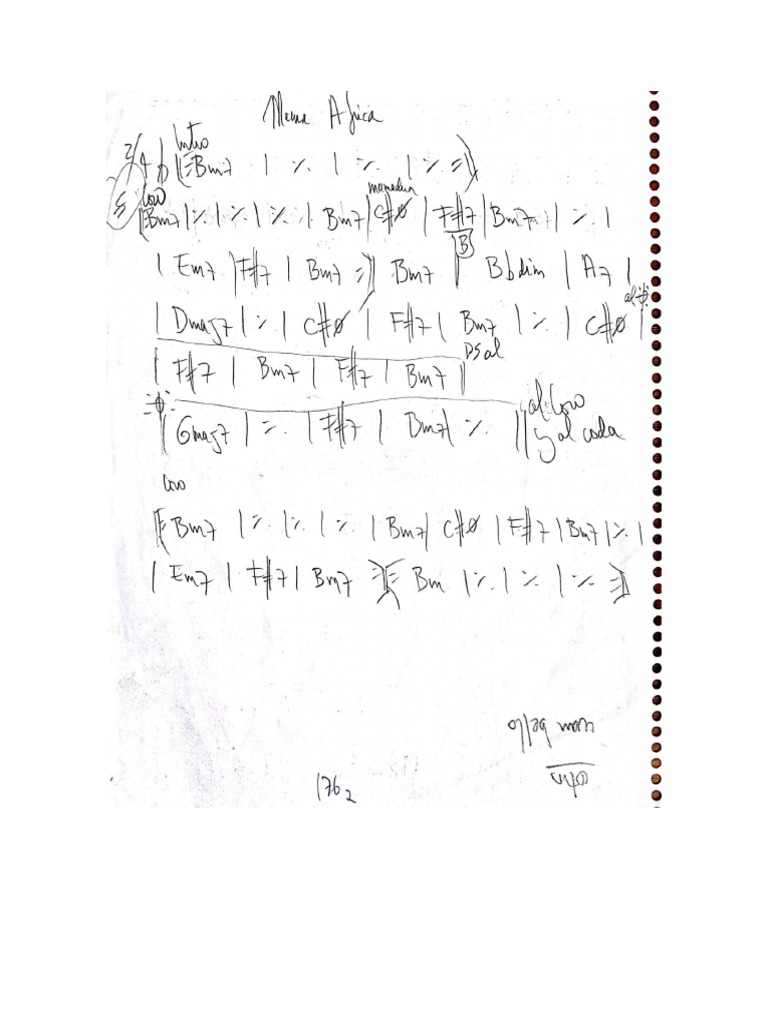 Mama Africa
Intro
2/4 ||: Bm7 | ٪ | ٪ | ٪ :||
𝄋 Coro
||: Bm7 | ٪ | ٪ | ٪ | Bm7 | C#ø | F#7 | Bm7 | ٪ |
B
| Em7 | F#7 | Bm7 :|| Bm7 | Bbdim | A7 |
al 𝄌
| Dmaj7 | ٪ | C#ø | F#7 | Bm7 | ٪ | C#ø |
| F#7 | Bm7 | F#7 | Bm7 || DS al
𝄌
| Gmaj7 | ٪ | F#7 | Bm7 | ٪ || al Coro
y al coda
Coro
||: Bm7 | ٪ | ٪ | ٪ | Bm7 | C#ø | F#7 | Bm7 | ٪ |
| Em7 | F#7 | Bm7 :||: Bm | ٪ | ٪ | ٪ :||
1762